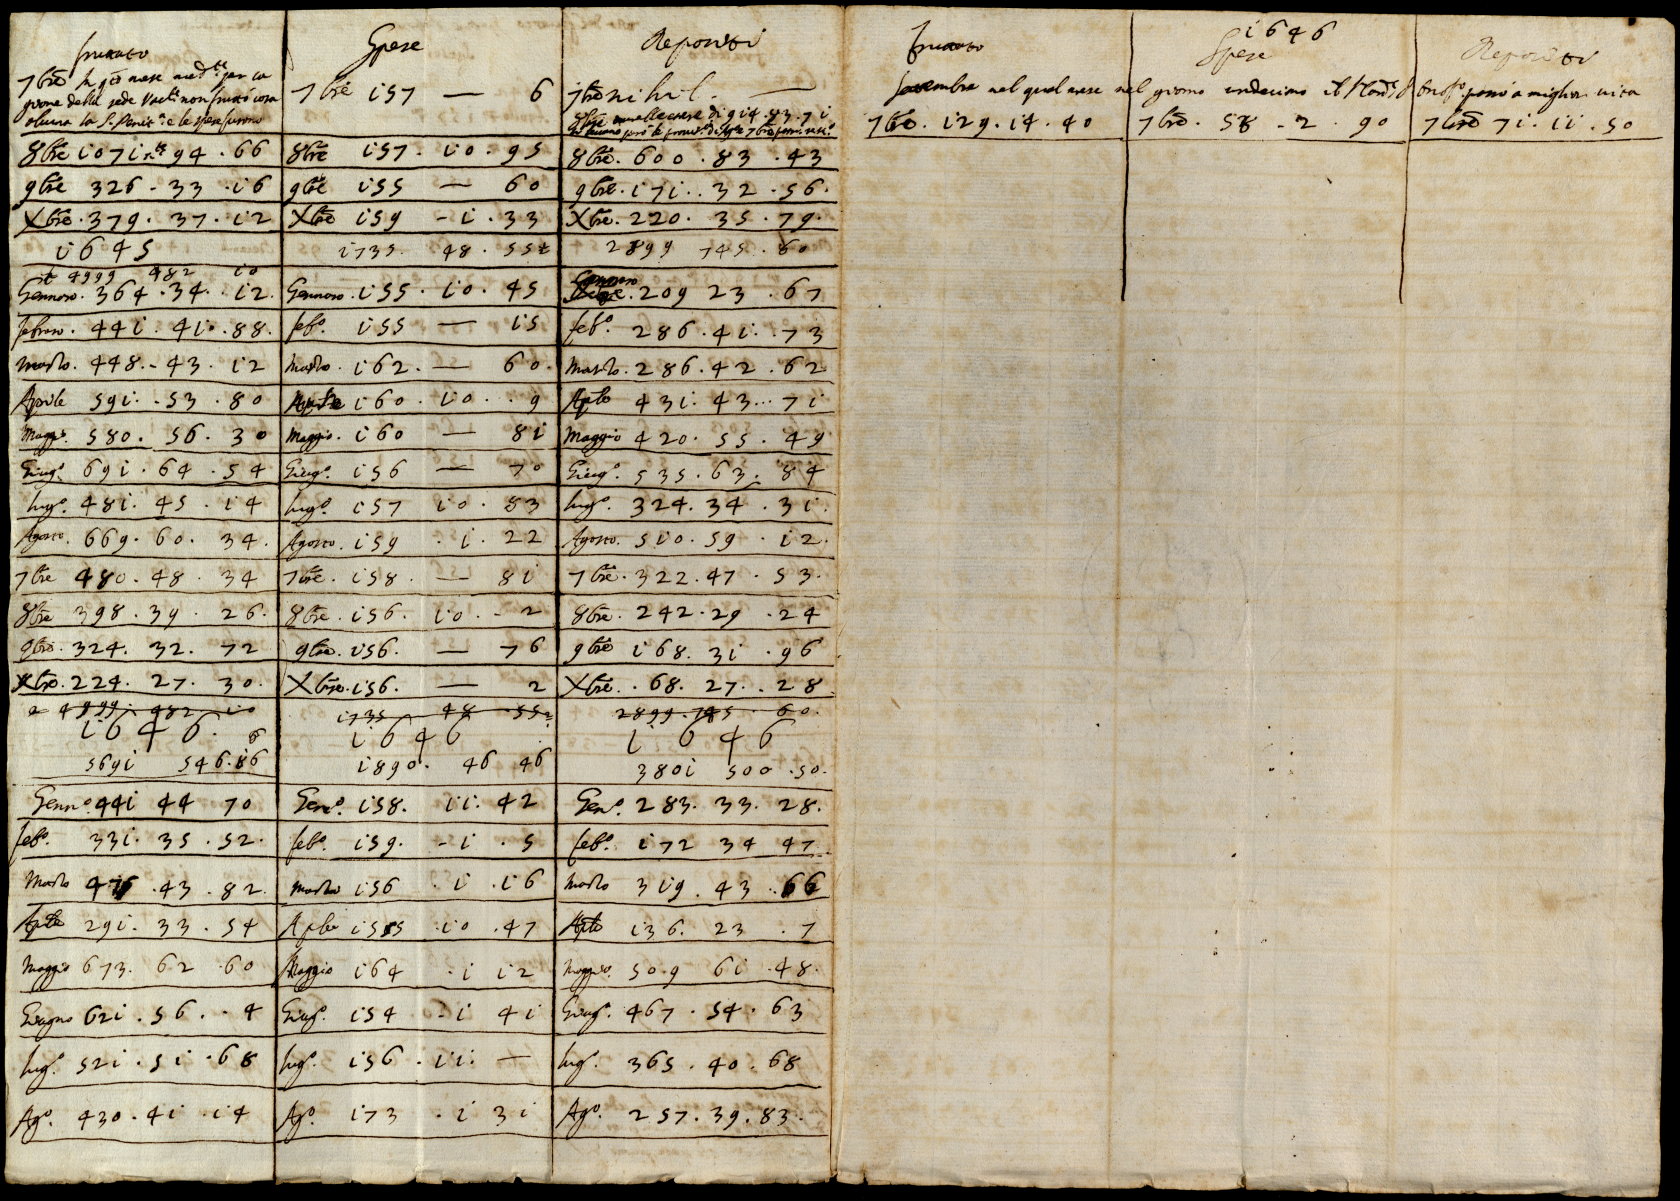 fruttato Spese Repositi
7bre In q̃to mese
gione della sede Vac.te non fruttò cosa
alcuna la
7bre i57 — 6
7bre nihil. —
8bre i07i 94 . 66 8bre i57 . i0 . 95 8bre . 600 . 83 . 43
9bre 326 . 33 . i6 9bre i55 — 60 9bre . i7i . 32 . 56 .
Xbre . 379 . 37 . i2 Xbre i59 - i . 33 Xbre . 220 . 35 . 79 .
i645 i735 . 48 . 55 2899 745 . 60
4999 482 i0
Gennaro . 364 . 34 . i2 . Gennaro . i55 . i0 . 45 Gennaro . 209 23 . 67
febraro . 44i . 4i . 88 . feb.o i55 — i5 feb.o . 286 . 4i . 73
Marzo . 448 . - 43 . i2 Marzo . i62 . — 60 . Marzo . 286 . 42 . 62
Aprile 59i . . 53 . 80 Aprile i60 . i0 . . 9 Aple 43i . 43 . . . 7i
Magg.o . 580 . 56 . 30 Maggio . i60 — 8i Maggio 420 . 55 . 49
Giug.o 69i . 64 . 54 Giug.o . i56 — 70 Giug.o . 535 . 63 . 84
lug.o . 48i . 45 . i4 lug.o . i57 i0 . 83 lug.o . 324 . 34 . 3i .
Agosto . 669 . 60 . 34 . Agosto . i59 . i . 22 Agosto . 5i0 . 59 . i2 .
7bre 480 . 48 . 34 7bre . i58 . — 8i 7bre . 322 . 47 . 53 .
8bre 398 . 39 . 26 . 8bre . i56 . i0 . - 2 8bre . 242 . 29 . 24
9bre . 324 . 32 . 72 9bre . i56 . — 76 9bre i68 . 3i . 96
Xbre . 224 . 27 . 30 . Xbre . i56 . — 2 Xbre . . 68 . 27 . . 28
4999 . 482 i0 i735 48 . 55 2899 . 745 . 60 .
i646 . i646 i646
569i 546 . 86 i890 . 46 46 380i 500 . 50 .
Genn.o 44i 44 70 Gen.o . i58 . ii . 42 Gen.o . 283 . 33 . 28 .
feb.o . 33i . 35 . 52 . feb.o . i59 . - i . 5 feb.o . i72 34 47
Marzo . 43 . 82 . Marzo i56 . i . i6 Marzo 3i9 . 43 . . 66
Aple 29i . 33 . 54 Aple i55 . i0 . 47 Aple i36 . 23 . 7
Maggio 673 . 62 . 60 Maggio i64 . i i2 Maggio . 509 6i . 48 .
Giugno 62i . 56 . . 4 Giug.o . i54 - i 4i Giug.o . 467 . 54 . 63
lug.o . 52i . 5i . 68 lug.o . i56 . ii . — lug.o . 365 . 40 . 68
Ag.o . 430 . 4i . i4 Ag.o . i73 . i 3i Ag.o . 257 . 39 . 83 .
i646
fruttato Spese Repositi
nel qual mese nel giorno undecimo il passò a miglior vita
7bre . i29 . i4 . 40 7bre . 58 . 2 . 90 7bre 7i . ii . 50